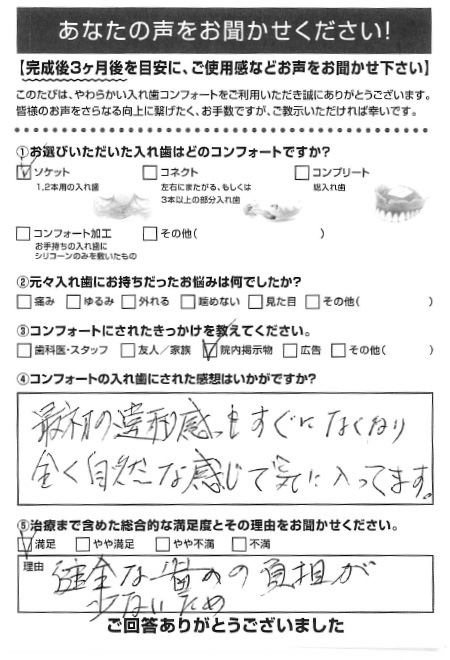 あなたの声をお聞かせください!
【完成後3ヶ月後を目安に、ご使用感などお声をお聞かせ下さい】
このたびは、やわらかい入れ歯コンフォートをご利用いただき誠にありがとうございます。
皆様のお声をさらなる向上に繋げたく、お手数ですが、ご教示いただければ幸いです。
①お選びいただいた入れ歯はどのコンフォートですか?
ソケット
1,2本用の入れ歯
コネクト
左右にまたがる、もしくは
3本以上の部分入れ歯
コンプリート
総入れ歯
コンフォート加工
お手持ちの入れ歯に
シリコーンのみを敷いたもの
その他( )
②元々入れ歯にお持ちだったお悩みは何でしたか?
痛み ゆるみ 外れる 噛めない 見た目 その他( )
③コンフォートにされたきっかけを教えてください。
歯科医・スタッフ 友人/家族 院内掲示物 広告 その他( )
④コンフォートの入れ歯にされた感想はいかがですか?
最初の違和感もすぐになくなり
全く自然な感じで気に入ってます。
⑤治療まで含めた総合的な満足度とその理由をお聞かせください。
満足 やや満足 やや不満 不満
理由
健全な歯の負担が
少ないため
ご回答ありがとうございました